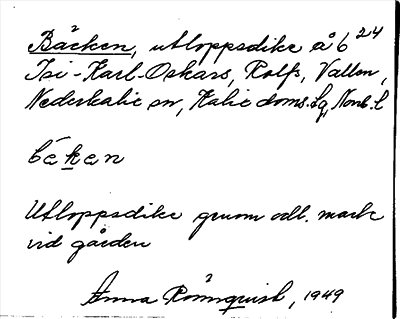 Bäcken, utloppsdike å 6 24
Isi-Karl-Oskars, Rolfs, Vallen,
Nederkalix sn, Kalix doms. lg, Norrb. l
beken
Utloppsdike genom odl. mark
vid gården
Anna Rönnquist, 1949